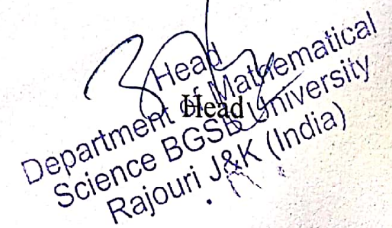 Head
Department of Mathematical
Head
Science BGSB University
Rajouri J&K (India)